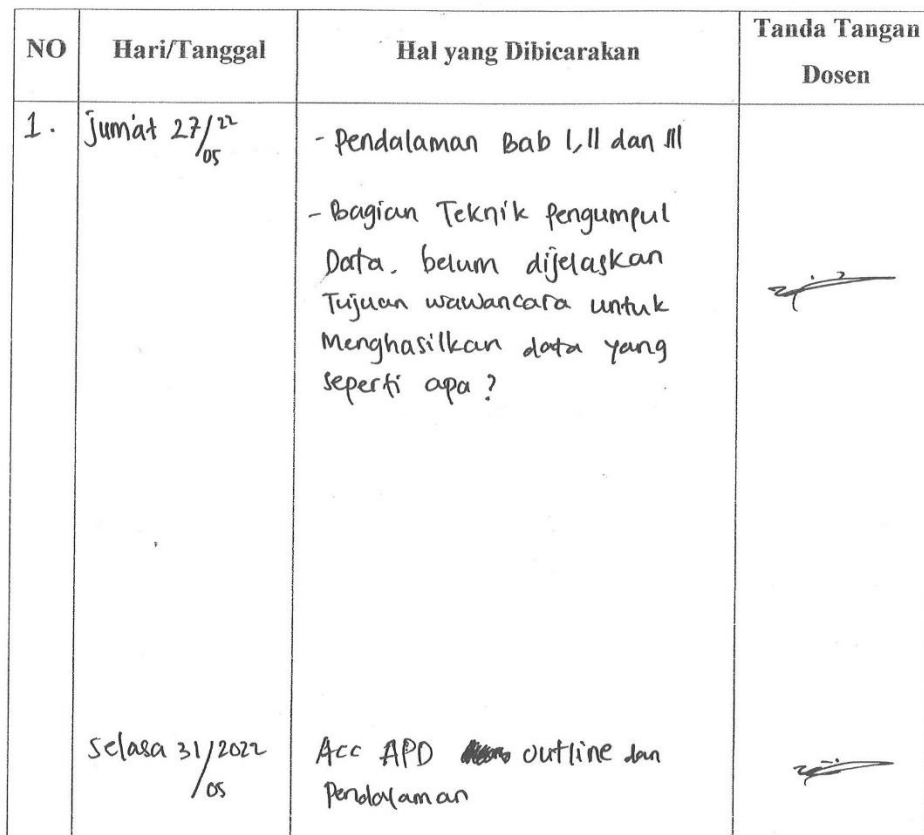 NO Hari/Tanggal Hal yang Dibicarakan Tanda Tangan Dosen
1. Jum'at 27/22/05 - Pendalaman Bab I, II dan III
- Bagian Teknik Pengumpul
Data. belum dijelaskan
Tujuan wawancara untuk
Menghasilkan data yang
seperti apa?
Selasa 31/2022/05 Acc APD outline dan
Pendalaman